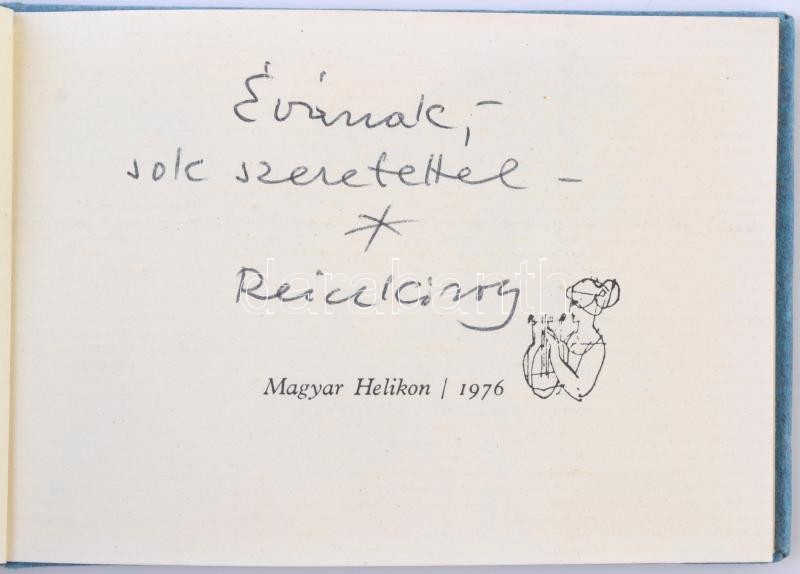 Évának,-
sok szeretettel -
*
Reich Károly
darabanth
Magyar Helikon | 1976